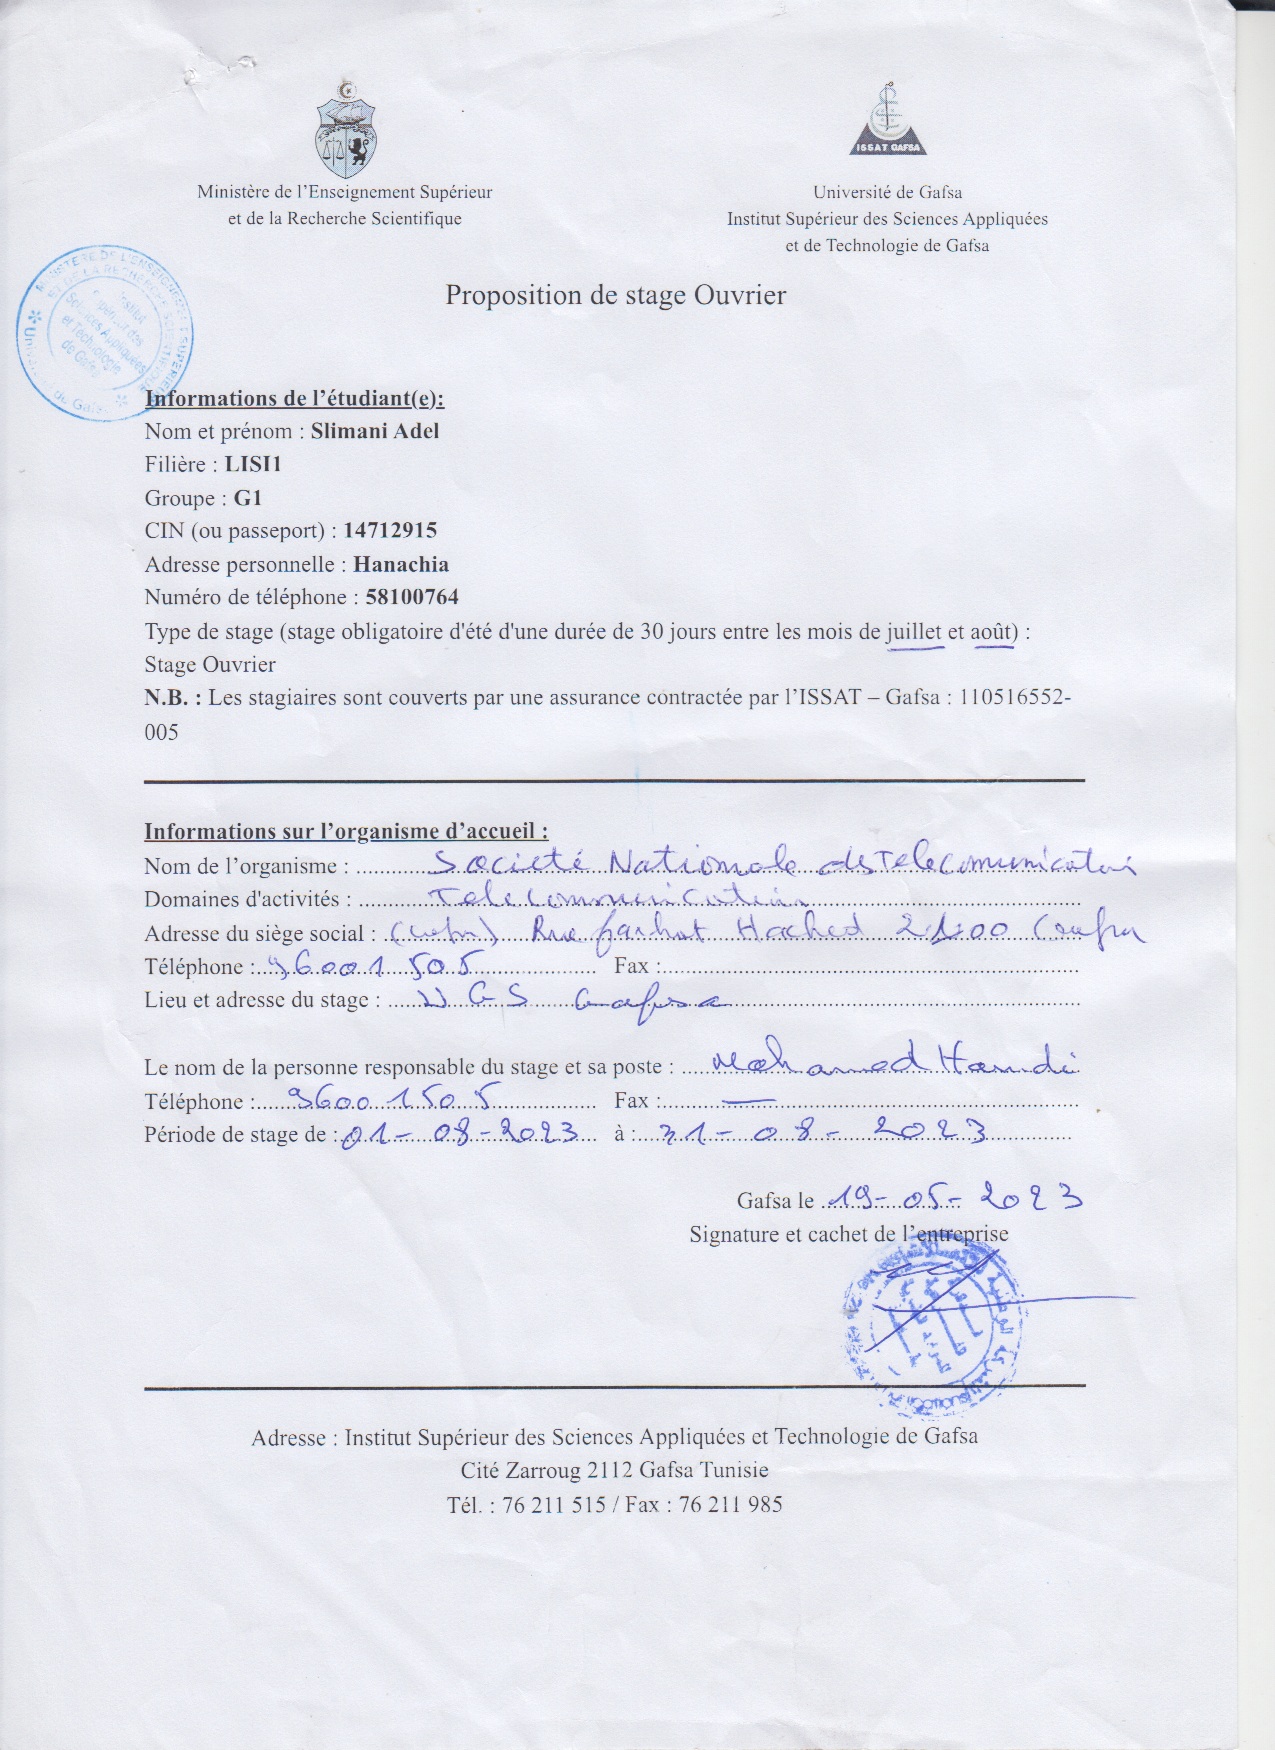 ISSAT GAFSA
Ministère de l'Enseignement Supérieur
et de la Recherche Scientifique
Université de Gafsa
Institut Supérieur des Sciences Appliquées
et de Technologie de Gafsa
MINISTERE DE L'ENSEIGNEMENT SUPERIEUR
ET DE LA RECHERCHE SCIENTIFIQUE
Institut
Supérieur des
Sciences Appliquées
et Technologie
de Gafsa
Proposition de stage Ouvrier
Informations de l'étudiant(e):
Nom et prénom : Slimani Adel
Filière : LISI1
Groupe : G1
CIN (ou passeport) : 14712915
Adresse personnelle : Hanachia
Numéro de téléphone : 58100764
Type de stage (stage obligatoire d'été d'une durée de 30 jours entre les mois de juillet et août) :
Stage Ouvrier
N.B. : Les stagiaires sont couverts par une assurance contractée par l'ISSAT – Gafsa : 110516552-
005
Informations sur l'organisme d'accueil :
Nom de l'organisme : Societé Nationale des Telecomunication
Domaines d'activités : Telecommunication
Adresse du siège social : Rue farhat Hached 2100 Gafsa
Téléphone : 96001505 Fax :
Lieu et adresse du stage : Gafsa
Le nom de la personne responsable du stage et sa poste : Mohamed Hamdi
Téléphone : 96001505 Fax : —
Période de stage de : 01-08-2023 à : 31-08-2023
Gafsa le 19-05-2023
Signature et cachet de l'entreprise
Adresse : Institut Supérieur des Sciences Appliquées et Technologie de Gafsa
Cité Zarroug 2112 Gafsa Tunisie
Tél. : 76 211 515 / Fax : 76 211 985